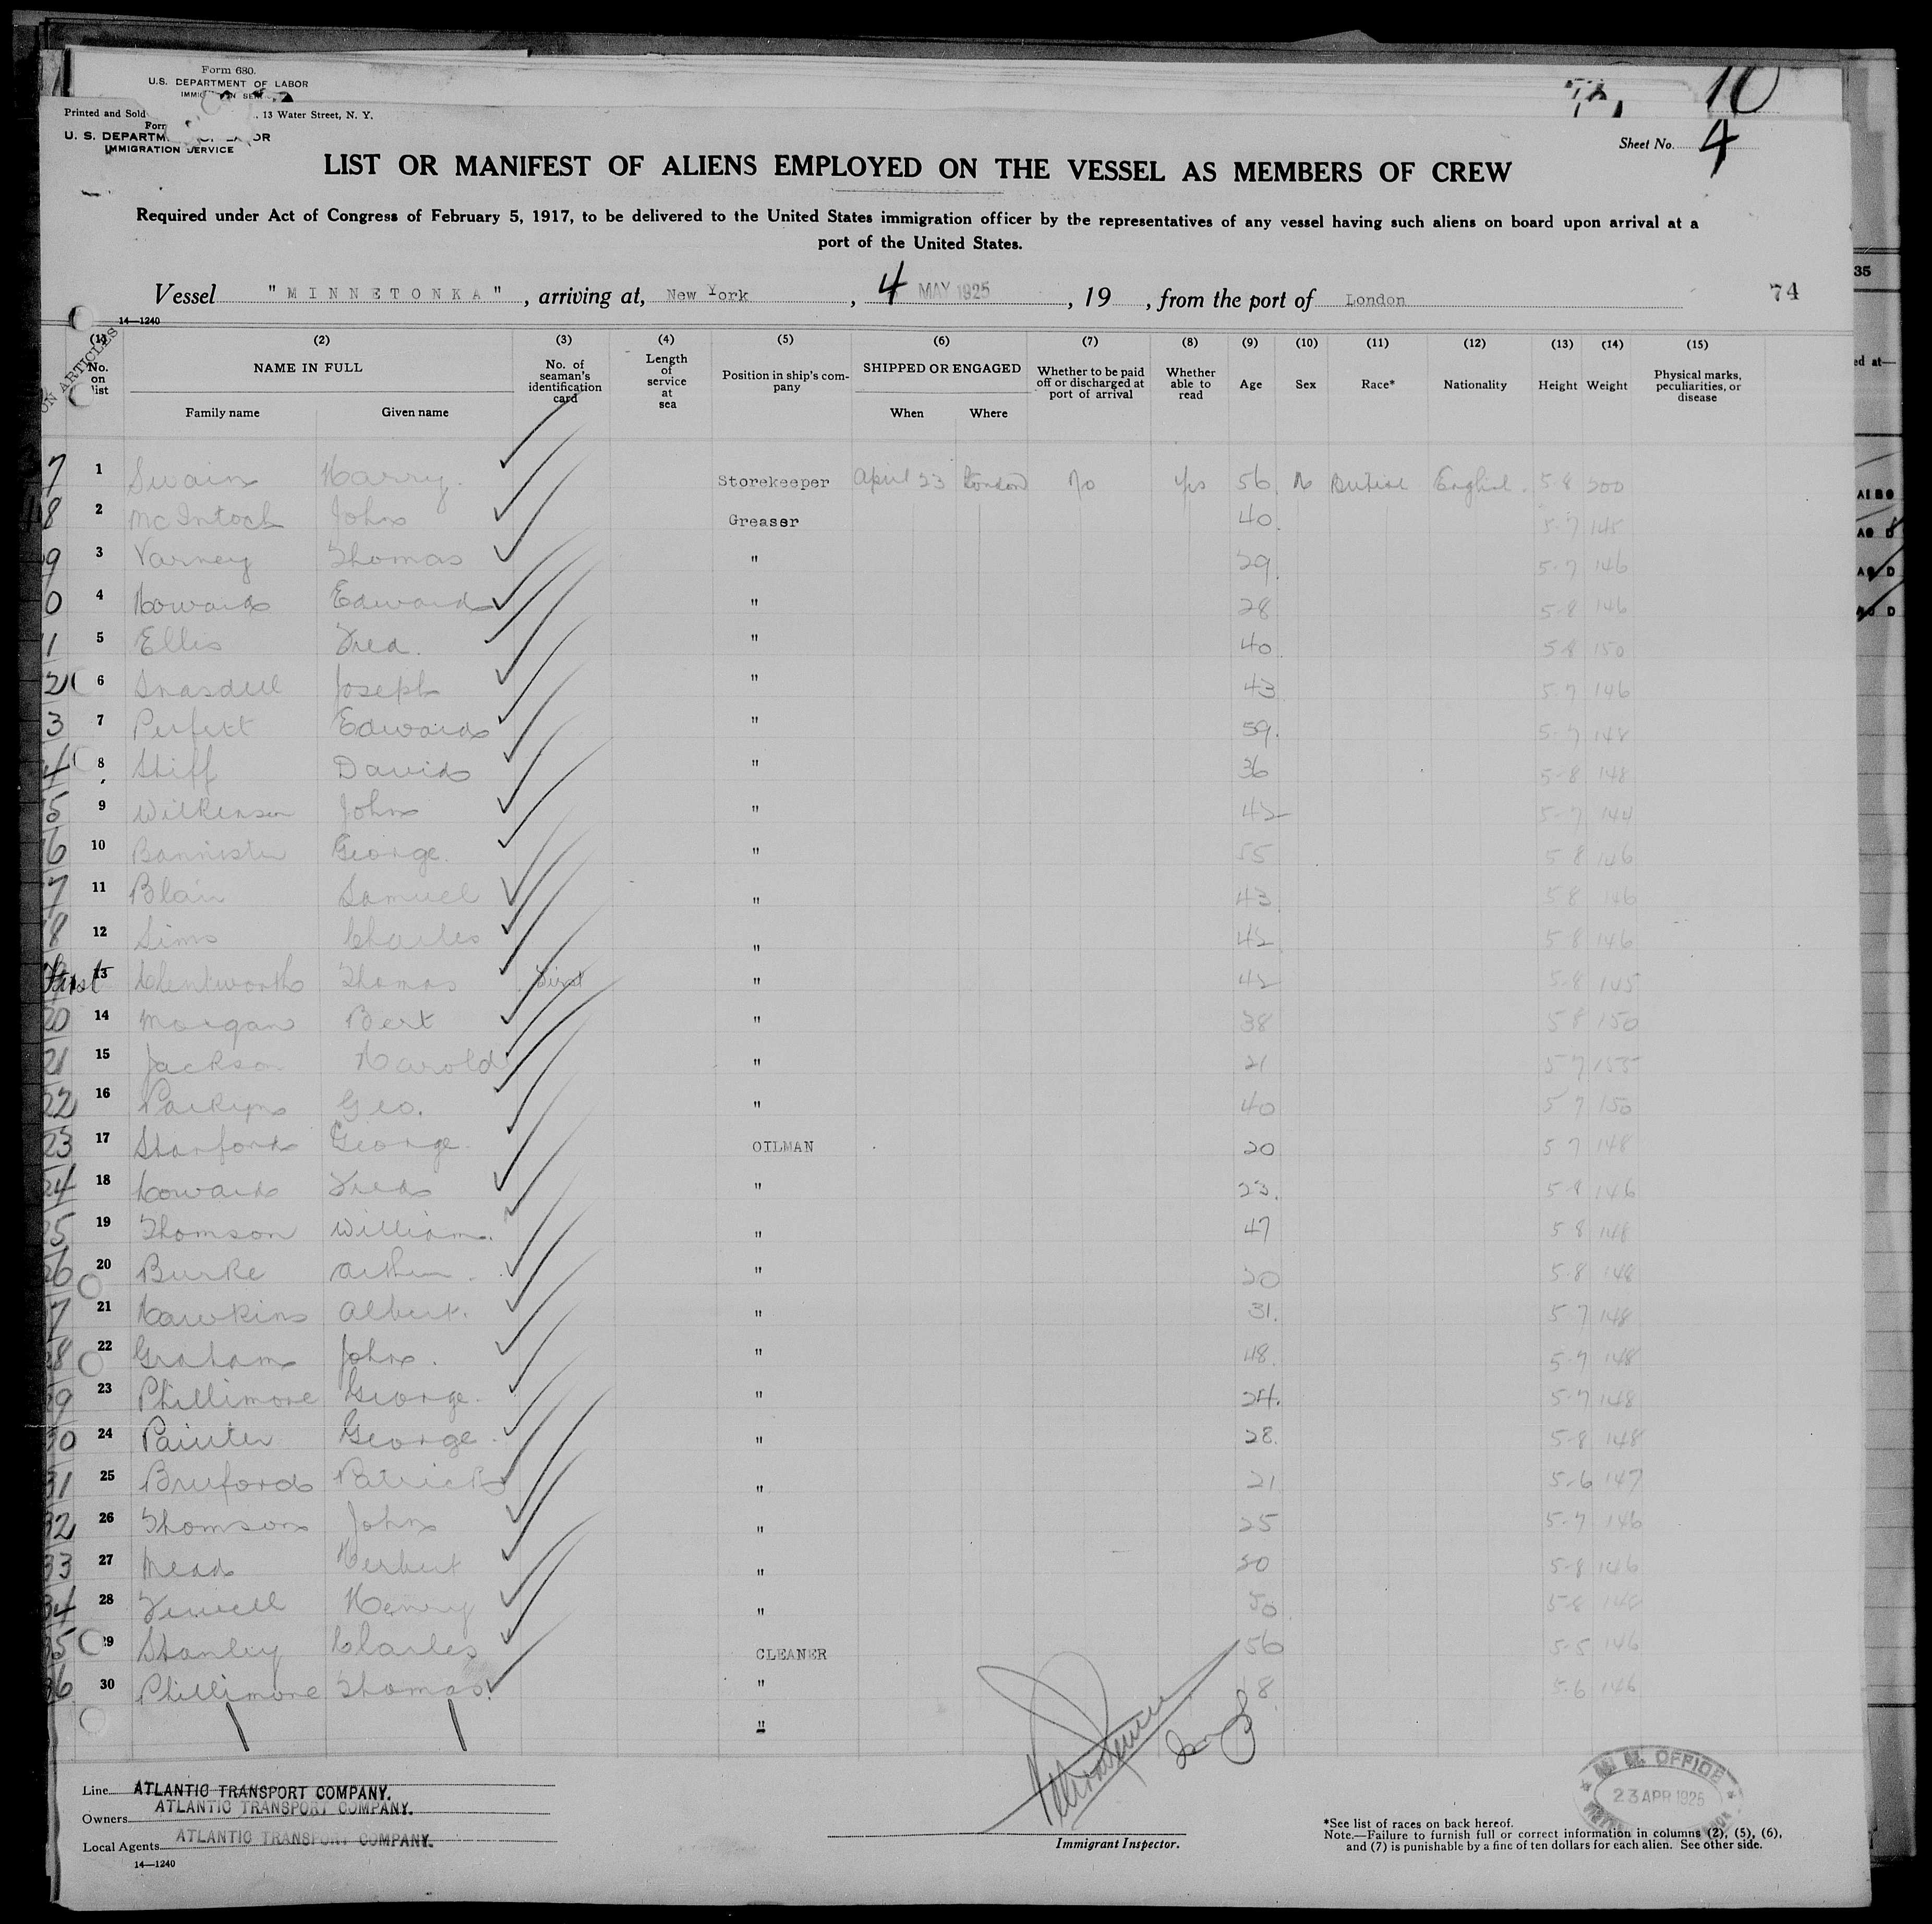 Form 680.
U.S. DEPARTMENT OF LABOR
10
Printed and Sold 13 Water Street, N. Y.
U. S. DEPARTM OR
IMMIGRATION SERVICE
Sheet No. 4
LIST OR MANIFEST OF ALIENS EMPLOYED ON THE VESSEL AS MEMBERS OF CREW
Required under Act of Congress of February 5, 1917, to be delivered to the United States immigration officer by the representatives of any vessel having such aliens on board upon arrival at a
port of the United States.
Vessel "MINNETONKA", arriving at, New York, 4 MAY 1925, 19 , from the port of London
74
14—1240
ON ARTICLES
(1) (2) (3) (4) (5) (6) (7) (8) (9) (10) (11) (12) (13) (14) (15)
No. on list NAME IN FULL Family name Given name No. of seaman's identification card Length of service at sea Position in ship's company SHIPPED OR ENGAGED When Where Whether to be paid off or discharged at port of arrival Whether able to read Age Sex Race* Nationality Height Weight Physical marks, peculiarities, or disease
7 1 Swain Harry. Storekeeper April 23 London No yes 56 M British English. 5-8 200
8 2 McIntosh John Greaser 40. 5-7 148
9 3 Varney Thomas " 29. 5-7 146
0 4 Howard Edward " 28 5-8 146
1 5 Ellis Fred. " 40 5-8 150
2 6 Joseph " 43 5-7 146
3 7 Perfett Edward " 59. 5-7 148
4 8 Stiff David " 36 5-8 148
5 9 Wilkinson John " 42 5-7 144
6 10 Bannister George. " 55 5 8 146
7 11 Blair Samuel " 43 5 8 146
8 12 Sims Charles " 42 5-8 146
First 13 Wentworth Thomas First " 42 5-8 145
20 14 Morgan Bert " 38 5 8 150
21 15 Jackson Harold " 21 5 7 155
22 16 Parkyns Geo. " 40 5 7 150
23 17 Stanford George. OILMAN 20 5 7 148
24 18 Howard Fred " 23. 5-8 146
25 19 Thomson William. " 47 5 8 148
26 20 Burke Arthur. " 20 5-8 148
7 21 Hawkins Albert. " 31. 5 7 148
28 22 Graham John. " 48. 5-7 148
29 23 Phillimore George. " 24. 5-7 148
30 24 Painter George. " 28. 5-8 148
31 25 Bruford Patrick " 21 5-6 147
32 26 Thomson John " 25 5-7 146
33 27 Mead Herbert " 30 5-8 146
34 28 Henry " 50 5-8 148
35 29 Stanley Charles CLEANER 56 5-5 146
36 30 Phillimore Thomas. " 18 5-6 146
"
Line ATLANTIC TRANSPORT COMPANY.
Owners ATLANTIC TRANSPORT COMPANY.
Local Agents ATLANTIC TRANSPORT COMPANY.
14—1240
Immigrant Inspector.
OFFICE
23 APR 1925
*See list of races on back hereof.
Note.—Failure to furnish full or correct information in columns (2), (5), (6),
and (7) is punishable by a fine of ten dollars for each alien. See other side.